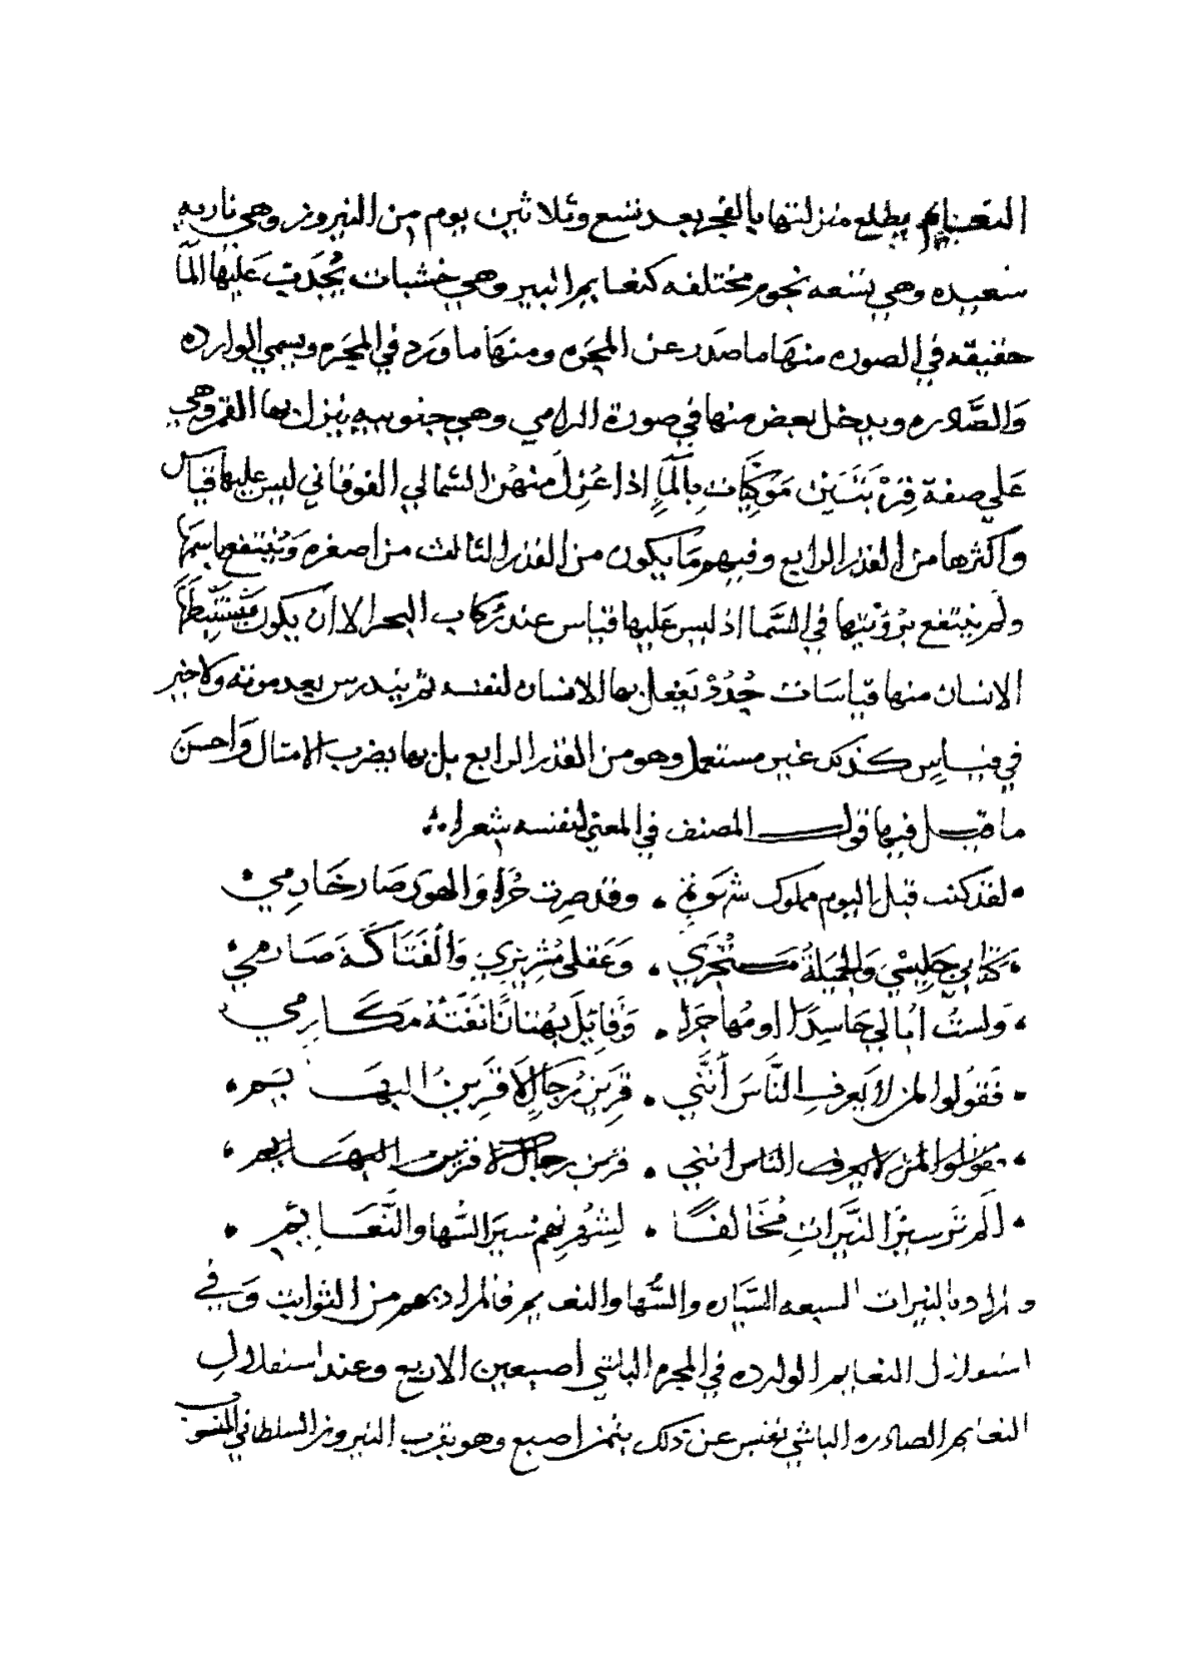 النعايم يطلع منزلتها بالفجر بعد تسع وثلاثين يوم من النيروز وهي ناريه
سعيده وهي تسعه نجوم مختلفه كنعايم البير وهي خشبات يُجْذَبُ عَليْها المآ
حقيقه في الصوره منهَا ما صَدر عن المجَره ومنهَا ما وَرد في المجَره وسمي الوارده
وَالصَّادره ويدخل بعض منها في صورة الرامي وهي جنوبيه ينزل بها القمر وهي
عَلي صفة قِرْبَتَيَنْ مَوكِيَّات بِالْمآءِ اذا عُزِلَ منهُن الشمالي الفوقاني ليس عليها قياس
واكثرها من القدر الرابع وفيهم مَا يكون من القدر الثالث من اصغره وَيُنتفع باسمهَا
ولَم ينتفع برُؤيتها في السَّما اذ ليس عَليها قياس عند رُكاب البحر الا ان يكون يَسْتَنْبِطهَا
الانسان منها قياسَات جُدُدْ يَفعل بها الانسان لنفسه ثم يندرس بعد موته ولا خير
في قياسٍ كذلك غير مستعمل وهو من القدر الرابع بل بها يضرب الامثال وَاحسنَ
ما قيل فيها قول المصنف في المعني لنفسه شعرا
لقد كنت قبل اليوم مملوك شهوَةٍ . وقد صِرت حُرًا وَالهوى صَار خَادِمي
كتَابي جَلِيسْي وَالجَميلةُ مَسْتْجَري . وَعَقلي مُشِيْري وَالْفَتَاكَةَ صَارمي
وَلستُ اُبالي حَاسِدًا او مُهاجرًا . وَقَائِلَ بُهتانًا نَفَتْهُ مَكَارِمي
فَقوُلوا لمن لا يَعرفِ النَّاسَ أنَّني . قرِينُ رُجَالٍ لَا قَرِينُ البهَايم
فقولوا لمن لا يعرف الناس انني . قرين رجال لا قرين البهَايم
الَم تَر سيْرَ النَيّراتِ مُخَالفًا . لِشُهْرتِهِم سيَر السُّها والنَّعَايِم
والمراد بالنيرات السبعه السّيّاره والسُّها والنعايم فالمراد بهم من الثوابت وَفي
استوا نزل النعايم الوارده في المجره الباشي اصبعين الا ربع وعند استقلال
النعايم الصادره الباشي نفيس عن ذلك بثمن اصبع وهو بقرب النيروز السلطاني المنسوب